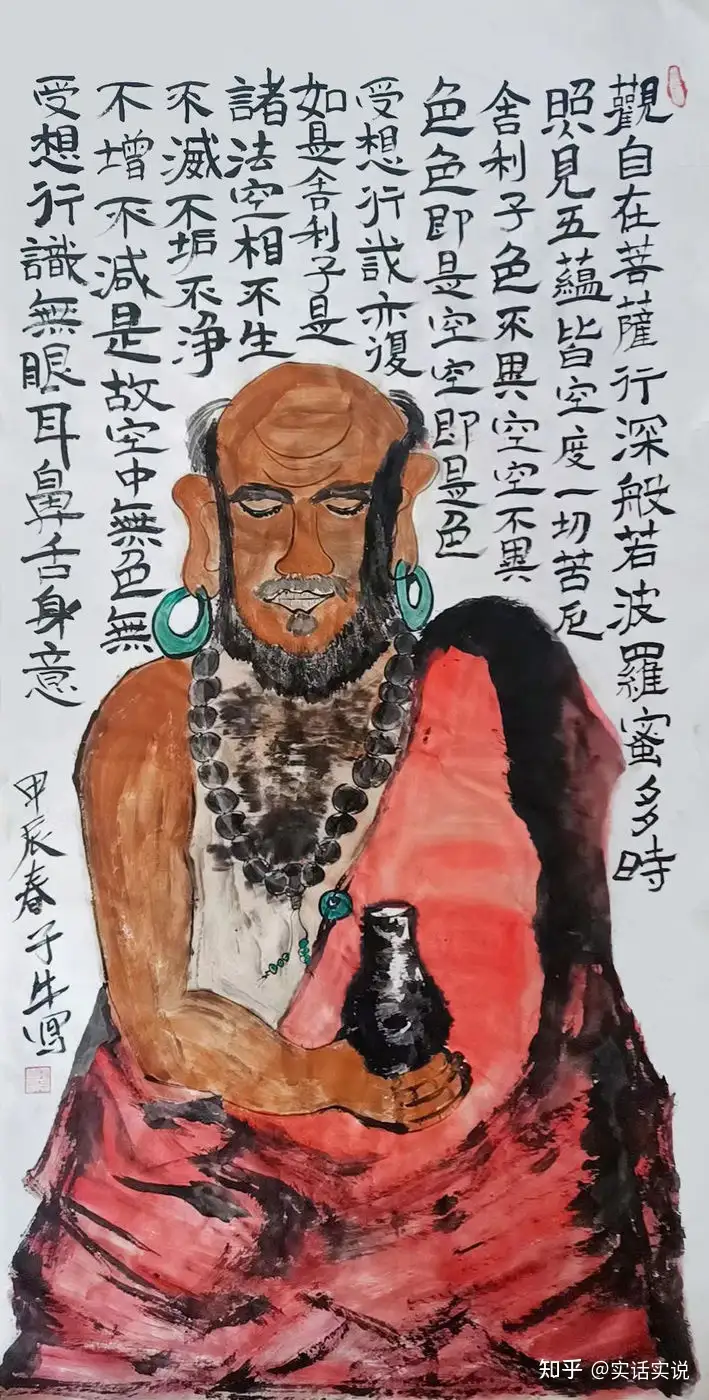 觀自在菩薩行深般若波羅蜜多時
照見五蘊皆空度一切苦厄
舍利子色不異空空不異
色色即是空空即是色
受想行識亦復
如是舍利子是
諸法空相不生
不滅不垢不淨
不增不減是故空中無色無
受想行識無眼耳鼻舌身意
甲辰春子牛寫
知乎 @实话实说